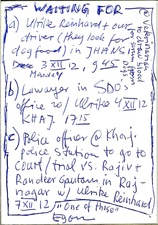 WAITING FOR
a) Ulrike Reinhard + our
driver (they look for
dogfood) in JHANSI
3 XII 12, 9 45
Monday
b) Lawyer in SDOs
office w/ Ulrike 4 XII 12
KHAJ. 17 15
c) Police officer @ Khaj.
police station to go to
court/trial vs. Rajiv +
Ronder Gautam in Raj-
nagar w/ Ulrike Reinhard
7 XII 12 in one of those